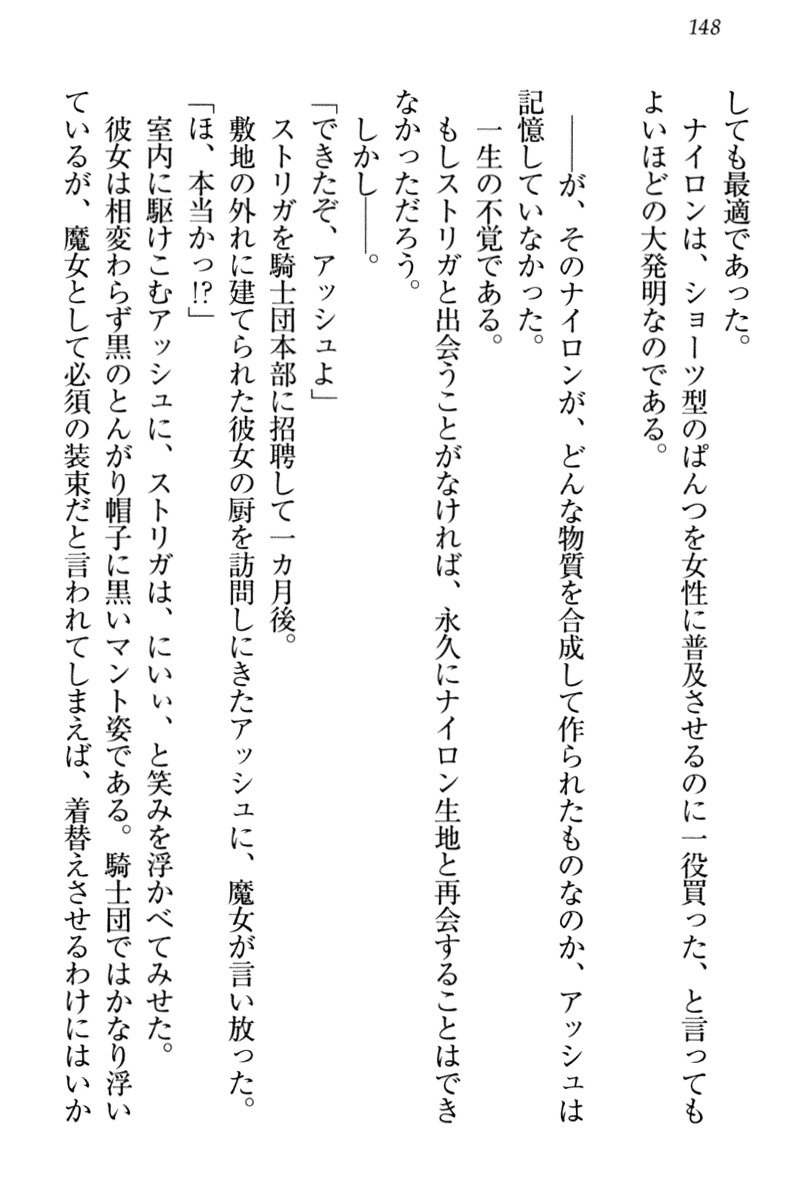 148
しても最適であった。
　ナイロンは、ショーツ型のぱんつを女性に普及させるのに一役買った、と言っても
よいほどの大発明なのである。
　――が、そのナイロンが、どんな物質を合成して作られたものなのか、アッシュは
記憶していなかった。
　一生の不覚である。
　もしストリガと出会うことがなければ、永久にナイロン生地と再会することはでき
なかっただろう。
　しかし――。
「できたぞ、アッシュよ」
　ストリガを騎士団本部に招聘して一カ月後。
　敷地の外れに建てられた彼女の厨を訪問しにきたアッシュに、魔女が言い放った。
「ほ、本当かっ!?」
　室内に駆けこむアッシュに、ストリガは、にいぃ、と笑みを浮かべてみせた。
　彼女は相変わらず黒のとんがり帽子に黒いマント姿である。騎士団ではかなり浮い
ているが、魔女として必須の装束だと言われてしまえば、着替えさせるわけにはいか